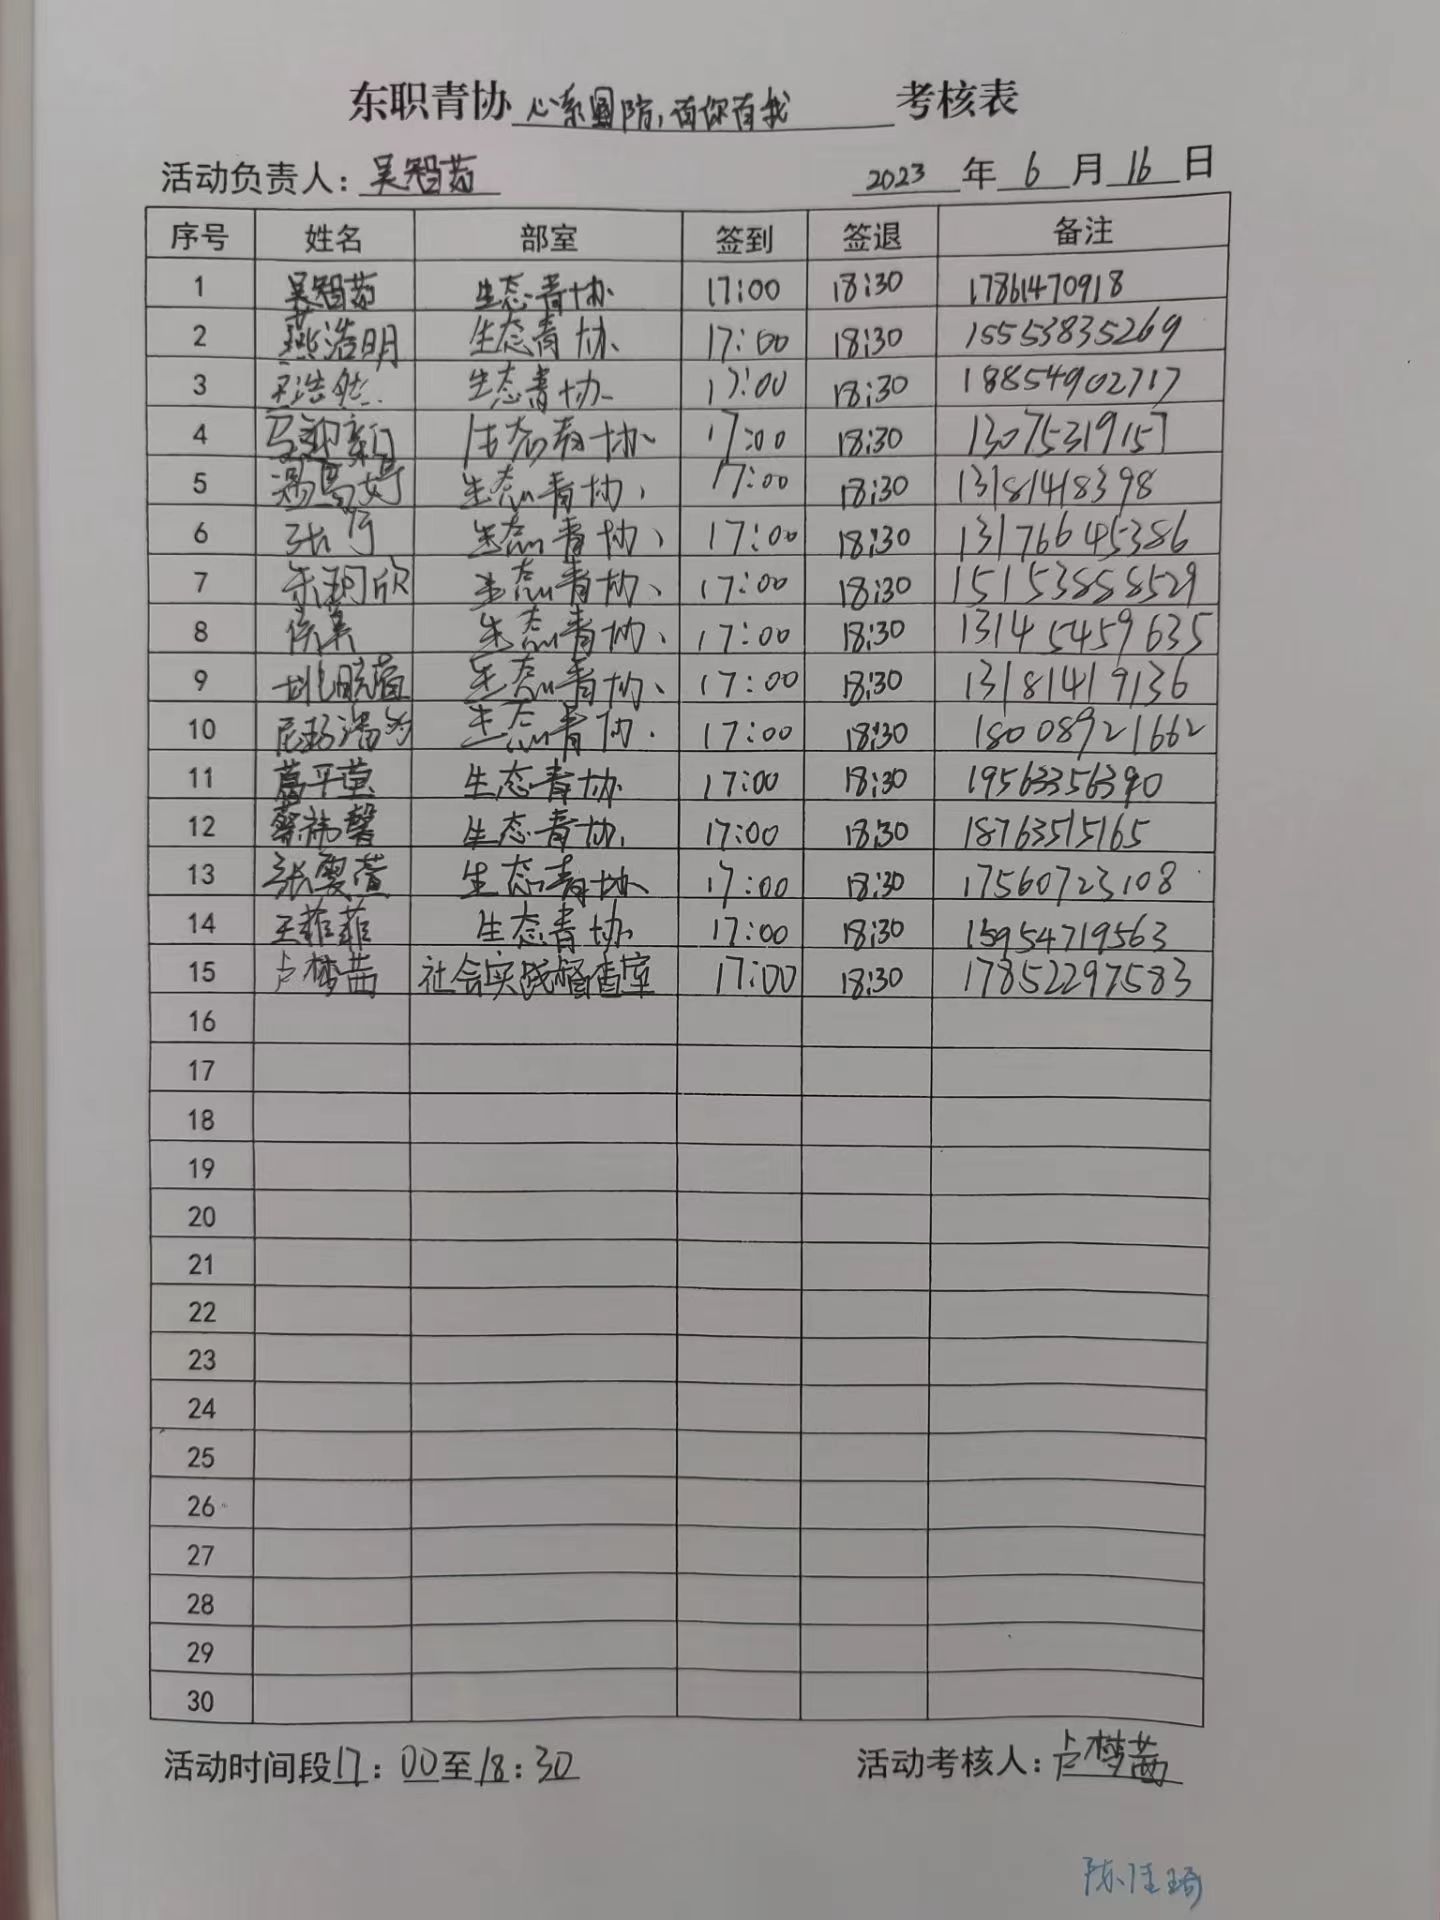 东职青协 心系国防,有你有我 考核表
活动负责人: 吴智茹 2023 年 6 月 16 日
序号 姓名 部室 签到 签退 备注
1 吴智茹 生态青协 17:00 18:30 17861470918
2 燕浩明 生态青协 17:00 18:30 15553835269
3 浩然 生态青协 17:00 18:30 18854902717
4 生态青协 17:00 18:30 13075319157
5 生态青协 17:00 18:30 13181418398
6 生态青协 17:00 18:30 13176645386
7 生态青协 17:00 18:30 15153858529
8 生态青协 17:00 18:30 13145459635
9 生态青协 17:00 18:30 13181419136
10 生态青协 17:00 18:30 18008921662
11 葛平萱 生态青协 17:00 18:30 19563356390
12 蔡祎馨 生态青协 17:00 18:30 18763515165
13 张雯萱 生态青协 17:00 18:30 17560723108
14 王菲菲 生态青协 17:00 18:30 15954719563
15 卢梦茜 社会实践督查室 17:00 18:30 17852297583
16
17
18
19
20
21
22
23
24
25
26
27
28
29
30
活动时间段 17:00至18:30 活动考核人: 卢梦茜
陈佳琦